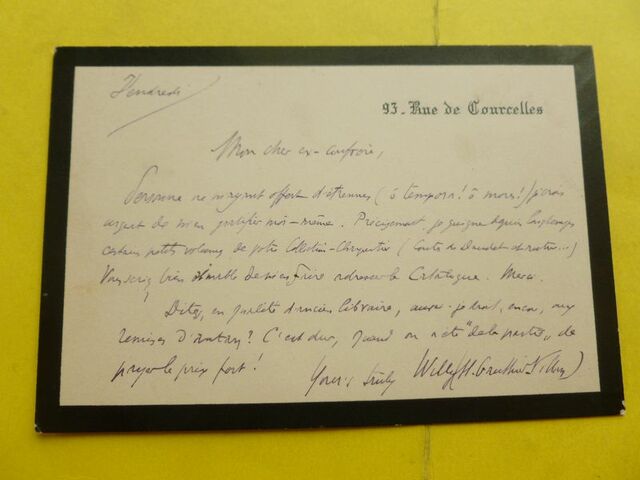 Vendredi
93 - Rue de Courcelles
Mon cher ex-confrère,
Personne ne m'ayant offert d'étrennes (ô tempora! ô mores!) je crois
urgent de m'en gratifier moi-même. Précisément je guigne depuis longtemps
certains petits volumes de votre Collection-Charpentier (Contes de Daudet et autres...)
Vous seriez bien aimable de m'en faire adresser le Catalogue. Merci.
Dites, en qualité d'ancien libraire, aurai-je droit, encore, aux
remises d'antan? C'est dur, quand on a été "de la partie", de
payer le prix fort!
Yours truly Willy (H. Gauthier-Villars)